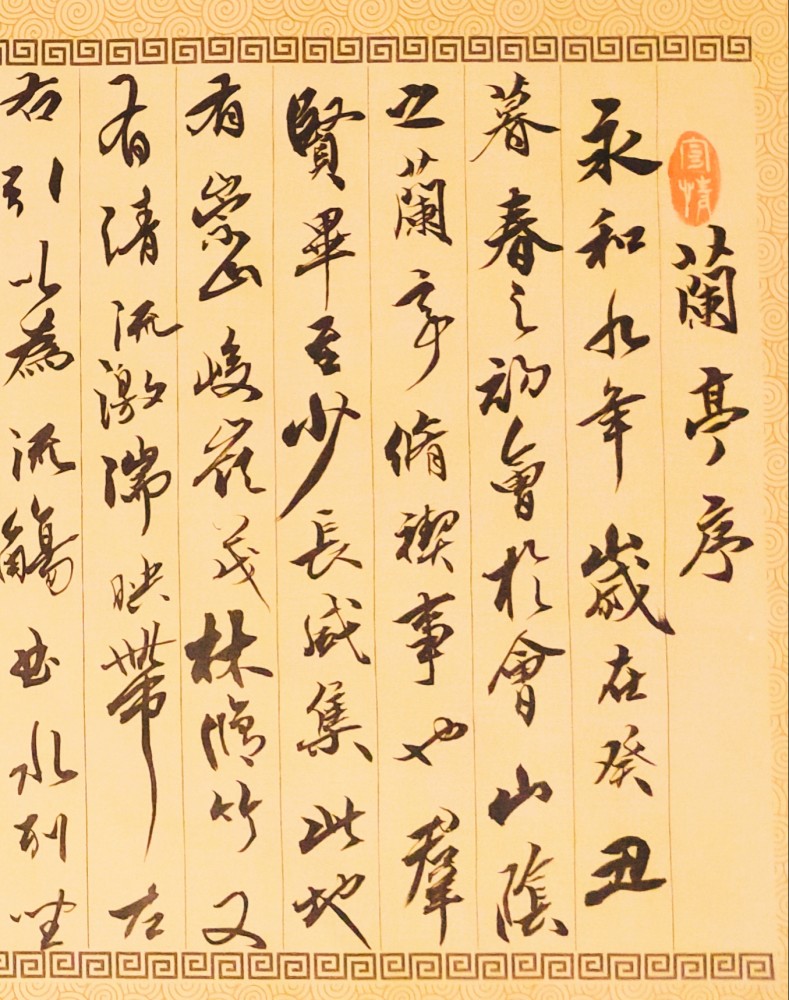 蘭亭序
永和九年歲在癸丑
暮春之初會於會山陰
之蘭亭脩禊事也羣
賢畢至少長咸集此地
有崇山峻嶺茂林脩竹又
有清流激湍映帶左
右引以為流觴曲水列坐